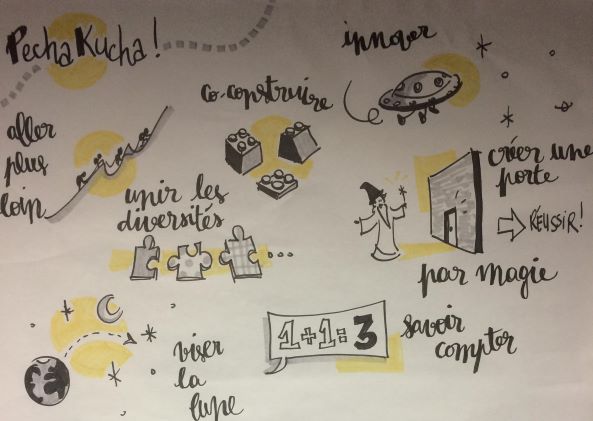 Pecha Kucha !
innover
co-construire
aller
plus
loin
unir les
diversités
...
créer une
porte
RÉUSSIR !
par magie
viser
la
lune
1+1=3
savoir
compter